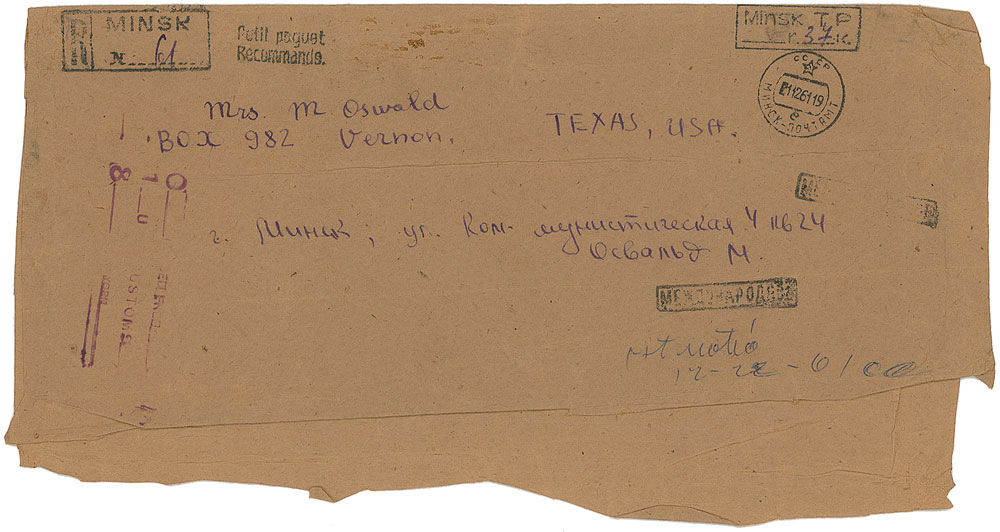 R MINSK
N 61
Petit paquet
Recommande.
Minsk T.P
r. 37 к.
СССР
21126119
МИНСК-ПОЧТАМТ
Mrs. M Oswald
BOX 982 Vernon. TEXAS, USA.
г. Минск, ул. Ком-мунистическая 4 кв 24
Освальд М.
МЕЖДУНАРОДНОЕ
1st notice
12-22-61